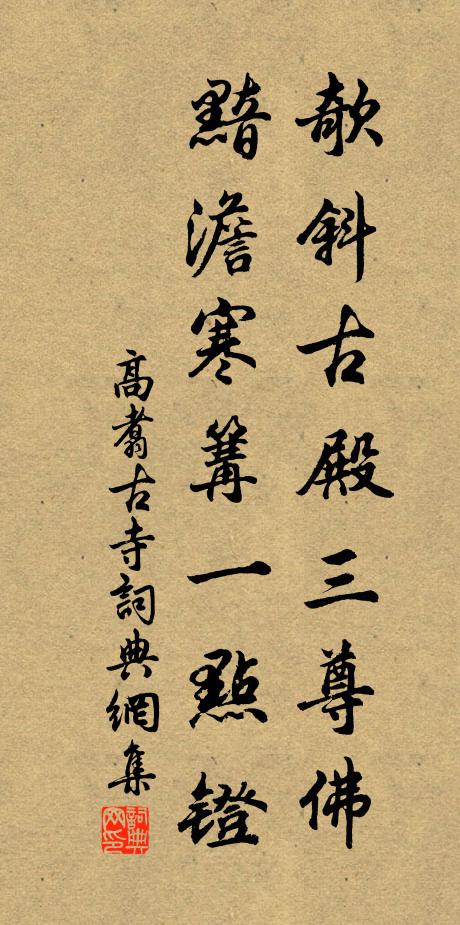 欹斜古殿三尊佛
黯澹寒篝一點鐙
高翥古寺詞典網集
詞典網印